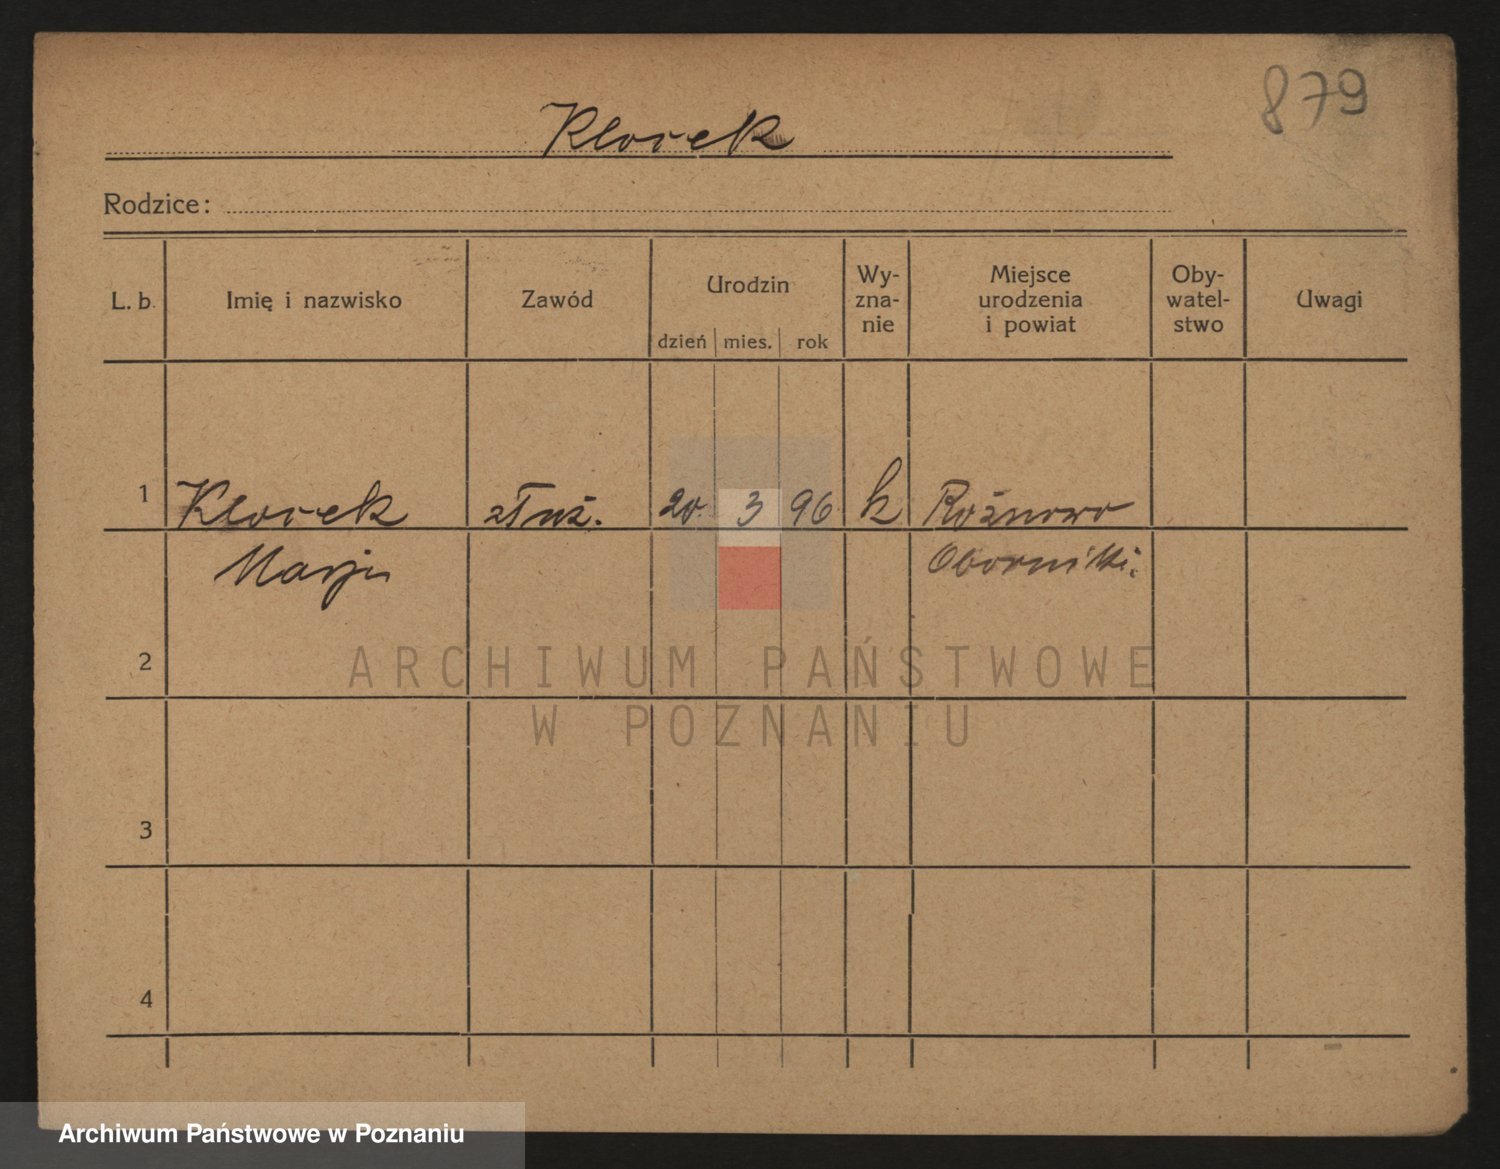 879
Klosek
Rodzice:
L. b. Imię i nazwisko Zawód Urodzin dzień mies. rok Wy- zna- nie Miejsce urodzenia i powiat Oby- watel- stwo Uwagi
1 Klosek służ. 20 3 96 k Rożnowo
Marja Oborniki.
2
ARCHIWUM PAŃSTWOWE
W POZNANIU
3
4
Archiwum Państwowe w Poznaniu